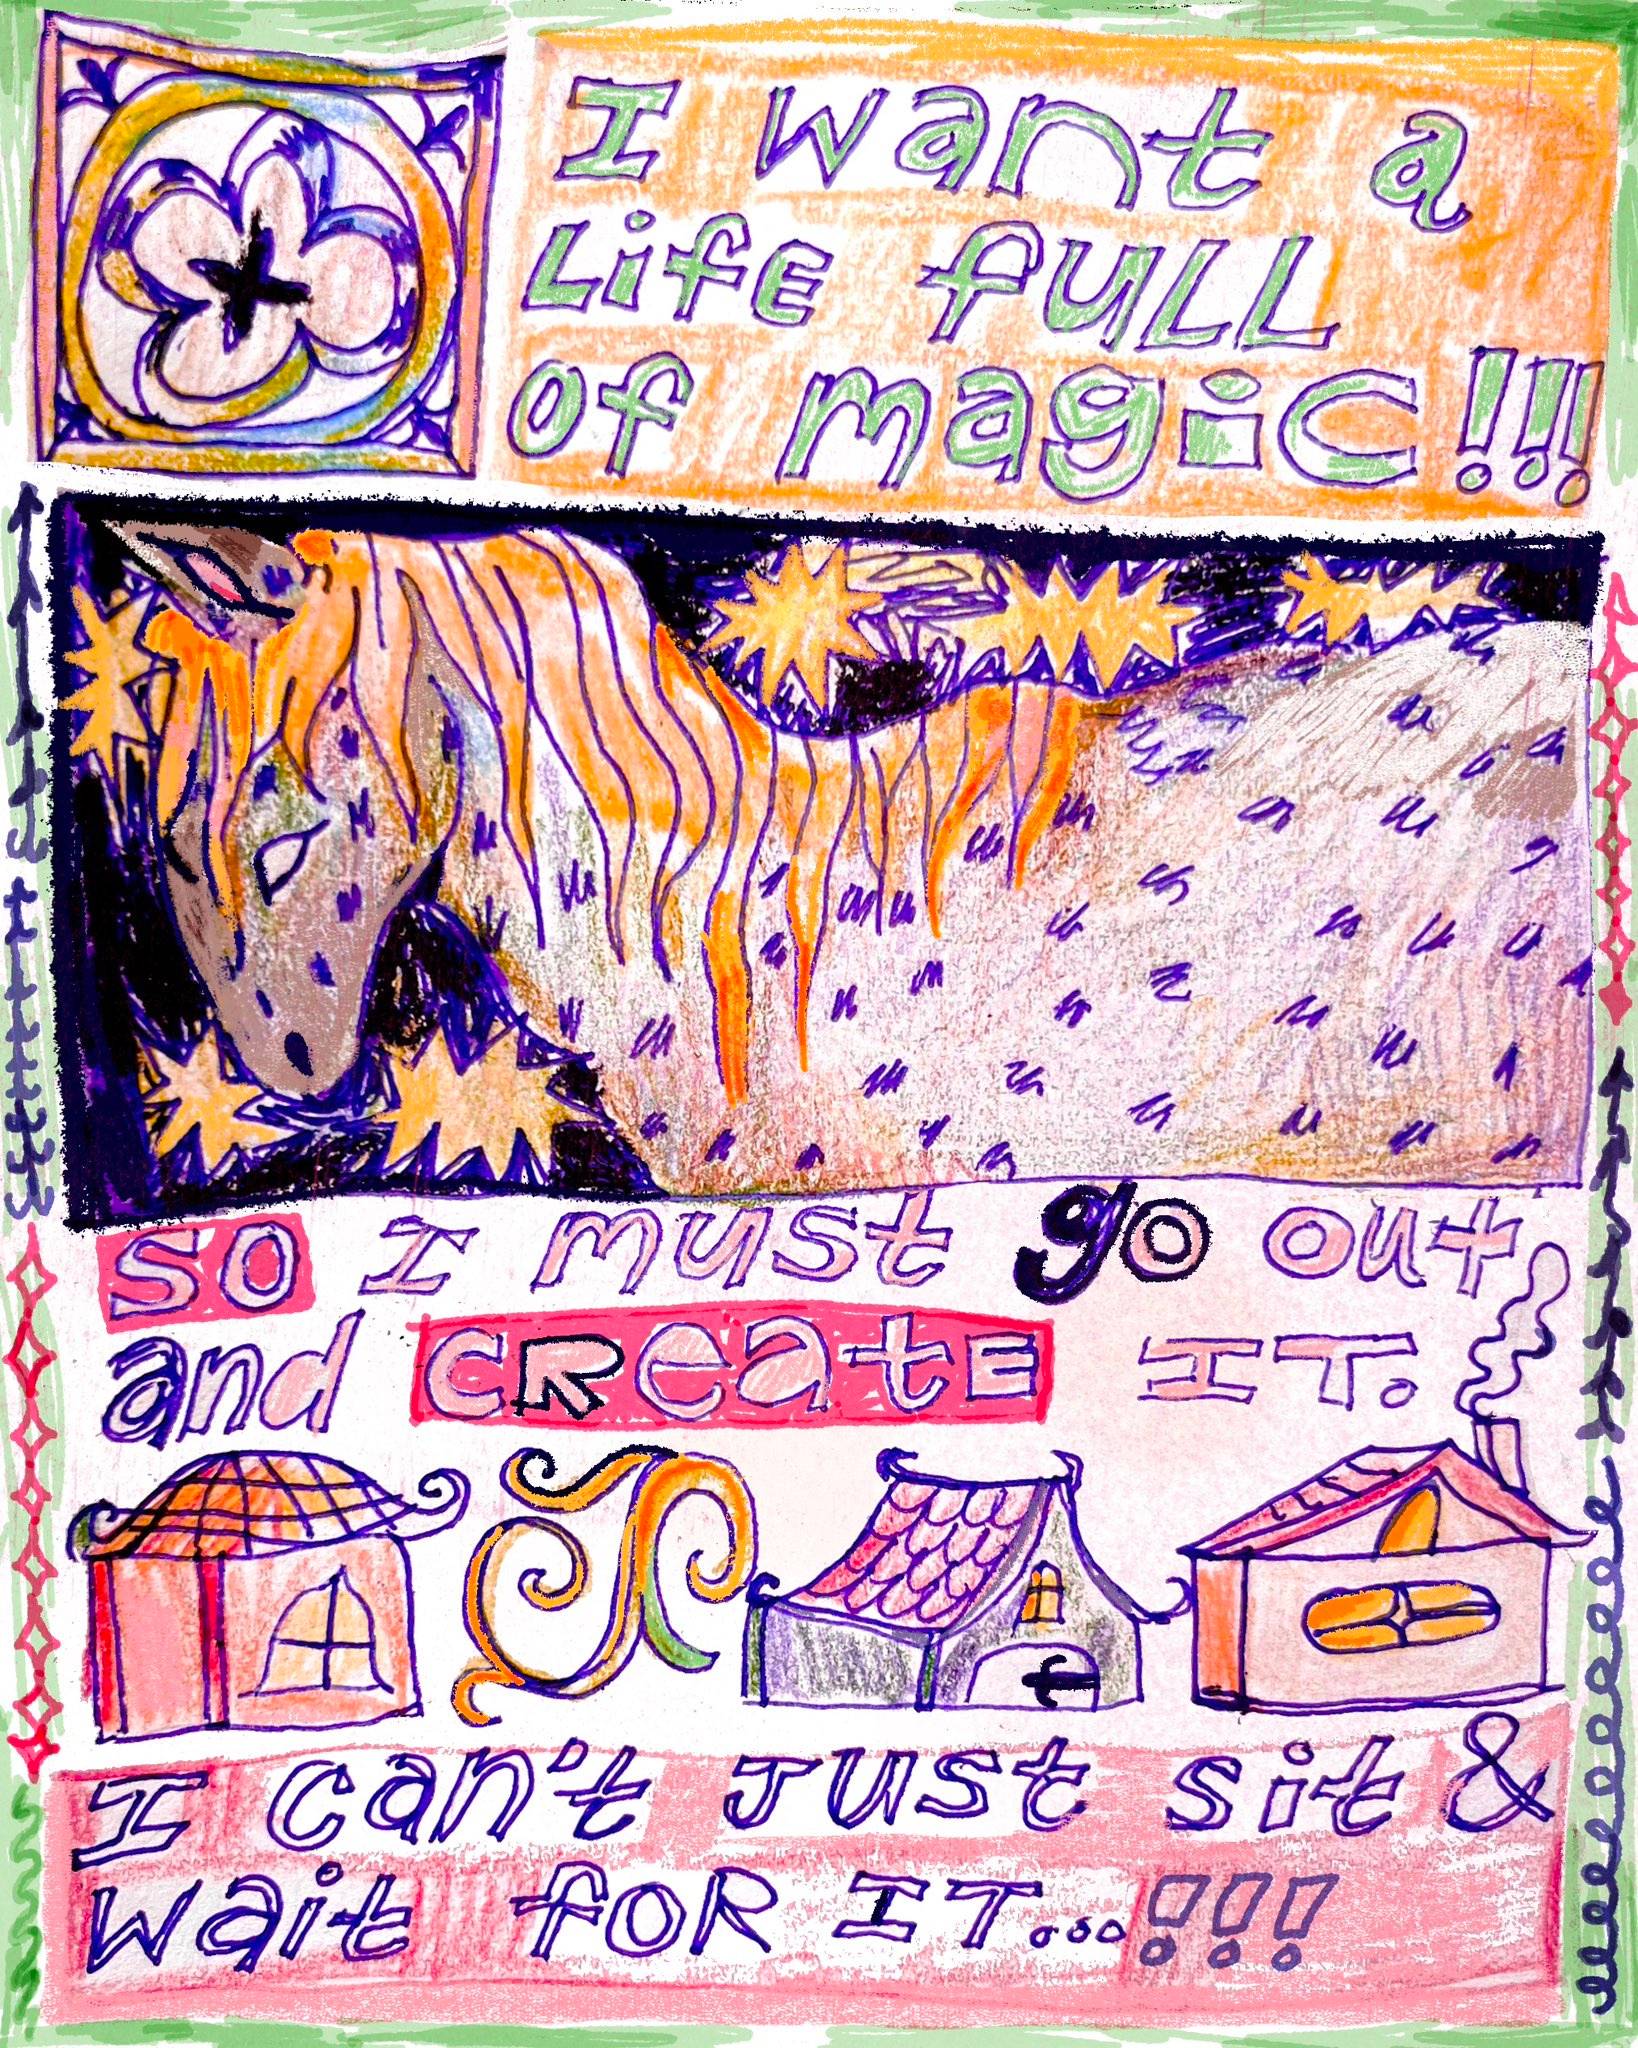 I want a
LifE fULL
of magic!!!
so I must go out
and CReatE IT.
I can't Just sit &
wait foR IT...!!!